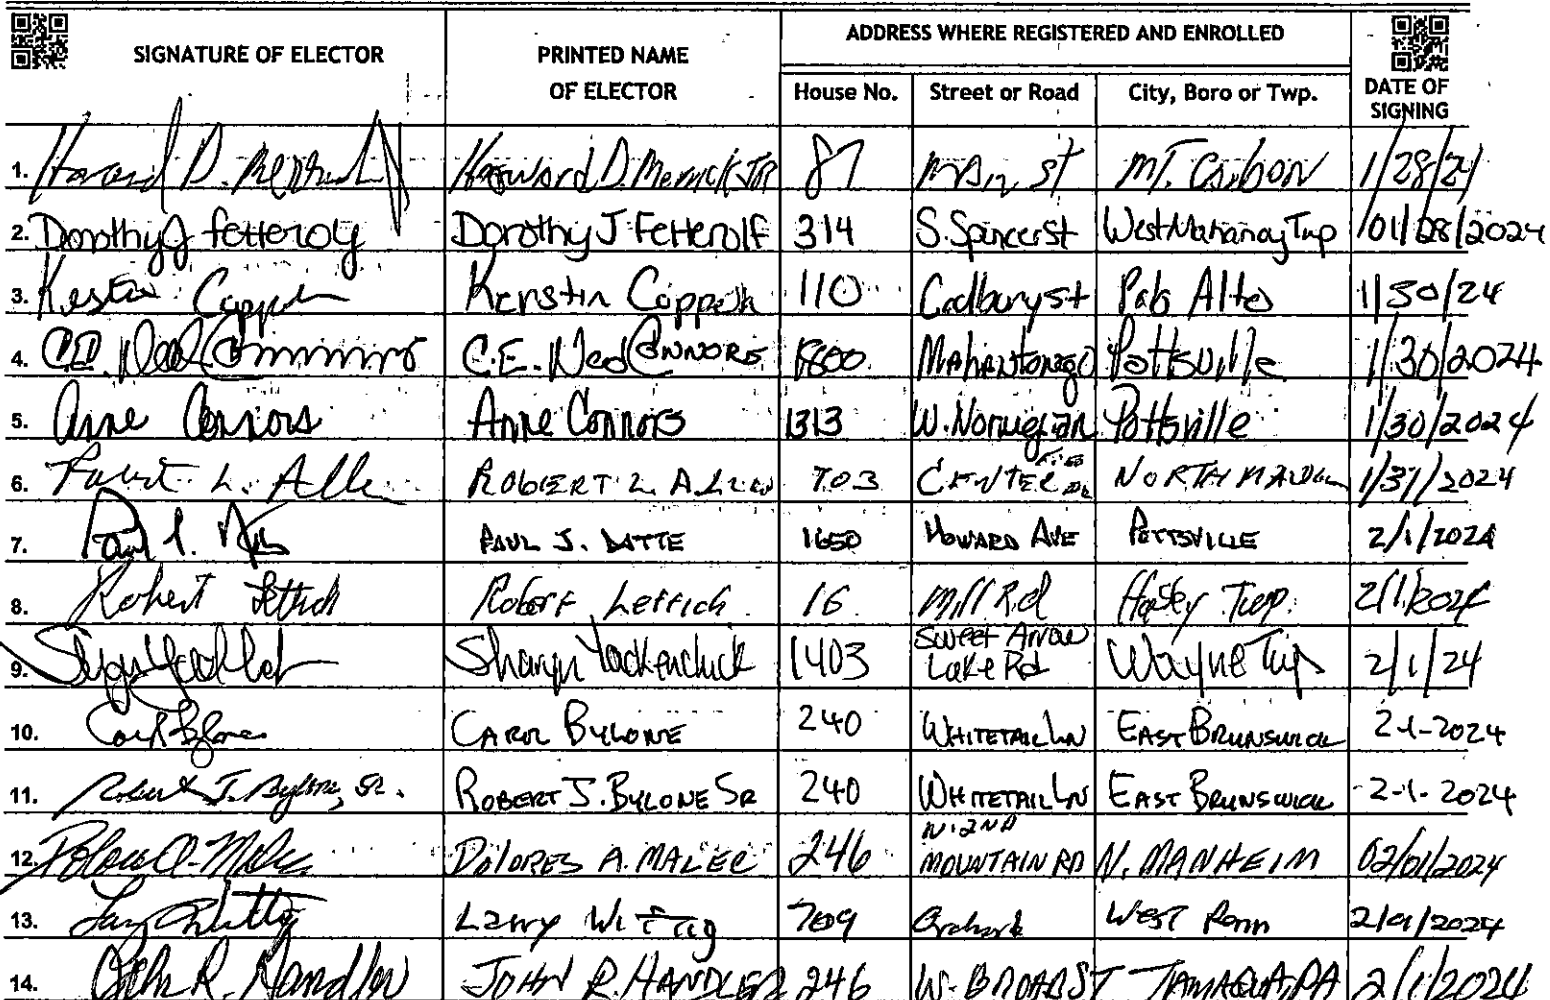 SIGNATURE OF ELECTOR PRINTED NAME OF ELECTOR ADDRESS WHERE REGISTERED AND ENROLLED DATE OF SIGNING
House No. Street or Road City, Boro or Twp.
1. Howard D. Merrick JR 87 Main st MT. Carbon 1/28/24
2. Dorothy J Fetterolf Dorothy J Fetterolf 314 S. Spencer st West Mahanoy Twp 01/28/2024
3. Kerstin Coppersm Kerstin 110 Cadbury st Palo Alto 1/30/24
4. C.E. Ned Connors C.E. Ned Connors 1800 Mahantongo Pottsville 1/30/2024
5. Anne Connors Anne Connors 1313 W. Norwegian Pottsville 1/30/2024
6. Robert L. Allen ROBERT L. ALLEN 703 CENTER NORTH 1/31/2024
7. PAUL J. DATTE 1650 HOWARD AVE POTTSVILLE 2/1/2024
8. Robert Lettich Robert Lettich 16 Mill Rd Twp. 2/1/2024
9. Sharyn Yackenchick 1403 Sweet Arrow Lake Rd Wayne Twp 2/1/24
10. Carol Bylone CAROL BYLONE 240 WHITETAIL LN EAST BRUNSWICK 2-1-2024
11. Robert J. Bylone, Sr. ROBERT J. BYLONE SR 240 WHITETAIL LN EAST BRUNSWICK 2-1-2024
12. Dolores A. Malec DOLORES A. MALEC 246 N. 2ND MOUNTAIN RD N. MANHEIM 02/01/2024
13. Larry Wittig Larry Wittig 709 Orchard West Penn 2/01/2024
14. John R. Handler JOHN R. HANDLER 246 W. BROAD ST TAMAQUA, PA 2/1/2024